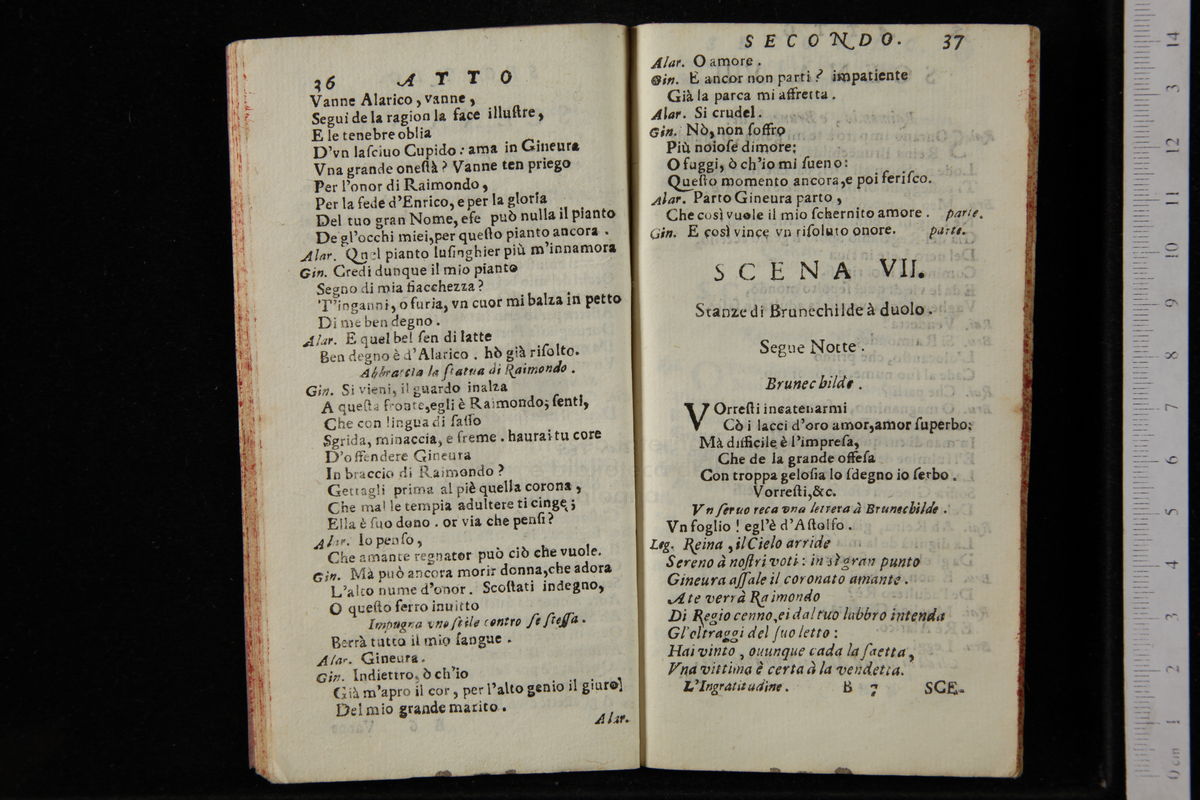 36 ATTO
Vanne Alarico, vanne,
Segui de la ragion la face illuſtre,
E le tenebre oblia
D'vn laſciuo Cupido: ama in Gineura
Vna grande oneſtà? Vanne ten priego
Per l'onor di Raimondo,
Per la fede d'Enrico, e per la gloria
Del tuo gran Nome, eſe può nulla il pianto
De gl'occhi miei, per queſto pianto ancora.
Alar. Quel pianto luſinghier più m'innamora
Gin. Credi dunque il mio pianto
Segno di mia fiacchezza?
T'inganni, o furia, vn cuor mi balza in petto
Di me ben degno.
Alar. E quel bel ſen di latte
Ben degno è d'Alarico. hò già riſolto.
Abbraccia la ſtatua di Raimondo.
Gin. Si vieni, il guardo inalza
A queſta fronte, egli è Raimondo; ſenti,
Che con lingua di ſaſſo
Sgrida, minaccia, e freme. haurai tu core
D'offendere Gineura
In braccio di Raimondo?
Gettagli prima al piè quella corona,
Che mal le tempia adultere ti cinge;
Ella è ſuo dono. or via che penſi?
Alar. Io penſo,
Che amante regnator può ciò che vuole.
Gin. Mà può ancora morir donna, che adora
L'alto nume d'onor. Scoſtati indegno,
O queſto ferro inuitto
Impugna vno ſtile contro ſe ſteſſa.
Berrà tutto il mio ſangue.
Alar. Gineura.
Gin. Indiettro, ò ch'io
Già m'apro il cor, per l'alto genio il giuro
Del mio grande marito.
Alar.
SECONDO. 37
Alar. O amore.
Gin. E ancor non parti? impatiente
Già la parca mi affretta.
Alar. Si crudel.
Gin. Nò, non ſoffro
Più noioſe dimore:
O fuggi, ò ch'io mi ſueno:
Queſto momento ancora, e poi feriſco.
Alar. Parto Gineura parto,
Che così vuole il mio ſchernito amore. parte.
Gin. E così vince vn riſoluto onore. parte.
SCENA VII.
Stanze di Brunechilde à duolo.
Segue Notte.
Brunechilde.
VOrreſti incatenarmi
Cò i lacci d'oro amor, amor ſuperbo:
Mà difficile è l'impreſa,
Che de la grande offeſa
Con troppa geloſia lo ſdegno io ſerbo.
Vorreſti, &c.
Vn ſeruo reca vna lettera à Brunechilde.
Vn foglio! egl'è d'Aſtolfo.
Leg. Reina, il Cielo arride
Sereno à noſtri voti: in sì gran punto
Gineura aſſale il coronato amante.
A te verrà Raimondo
Di Regio cenno, ei dal tuo labbro intenda
Gl'oltraggi del ſuo letto:
Hai vinto, ouunque cada la ſaetta,
Vna vittima è certa à la vendetta.
L'Ingratitudine. B 7 SCE-